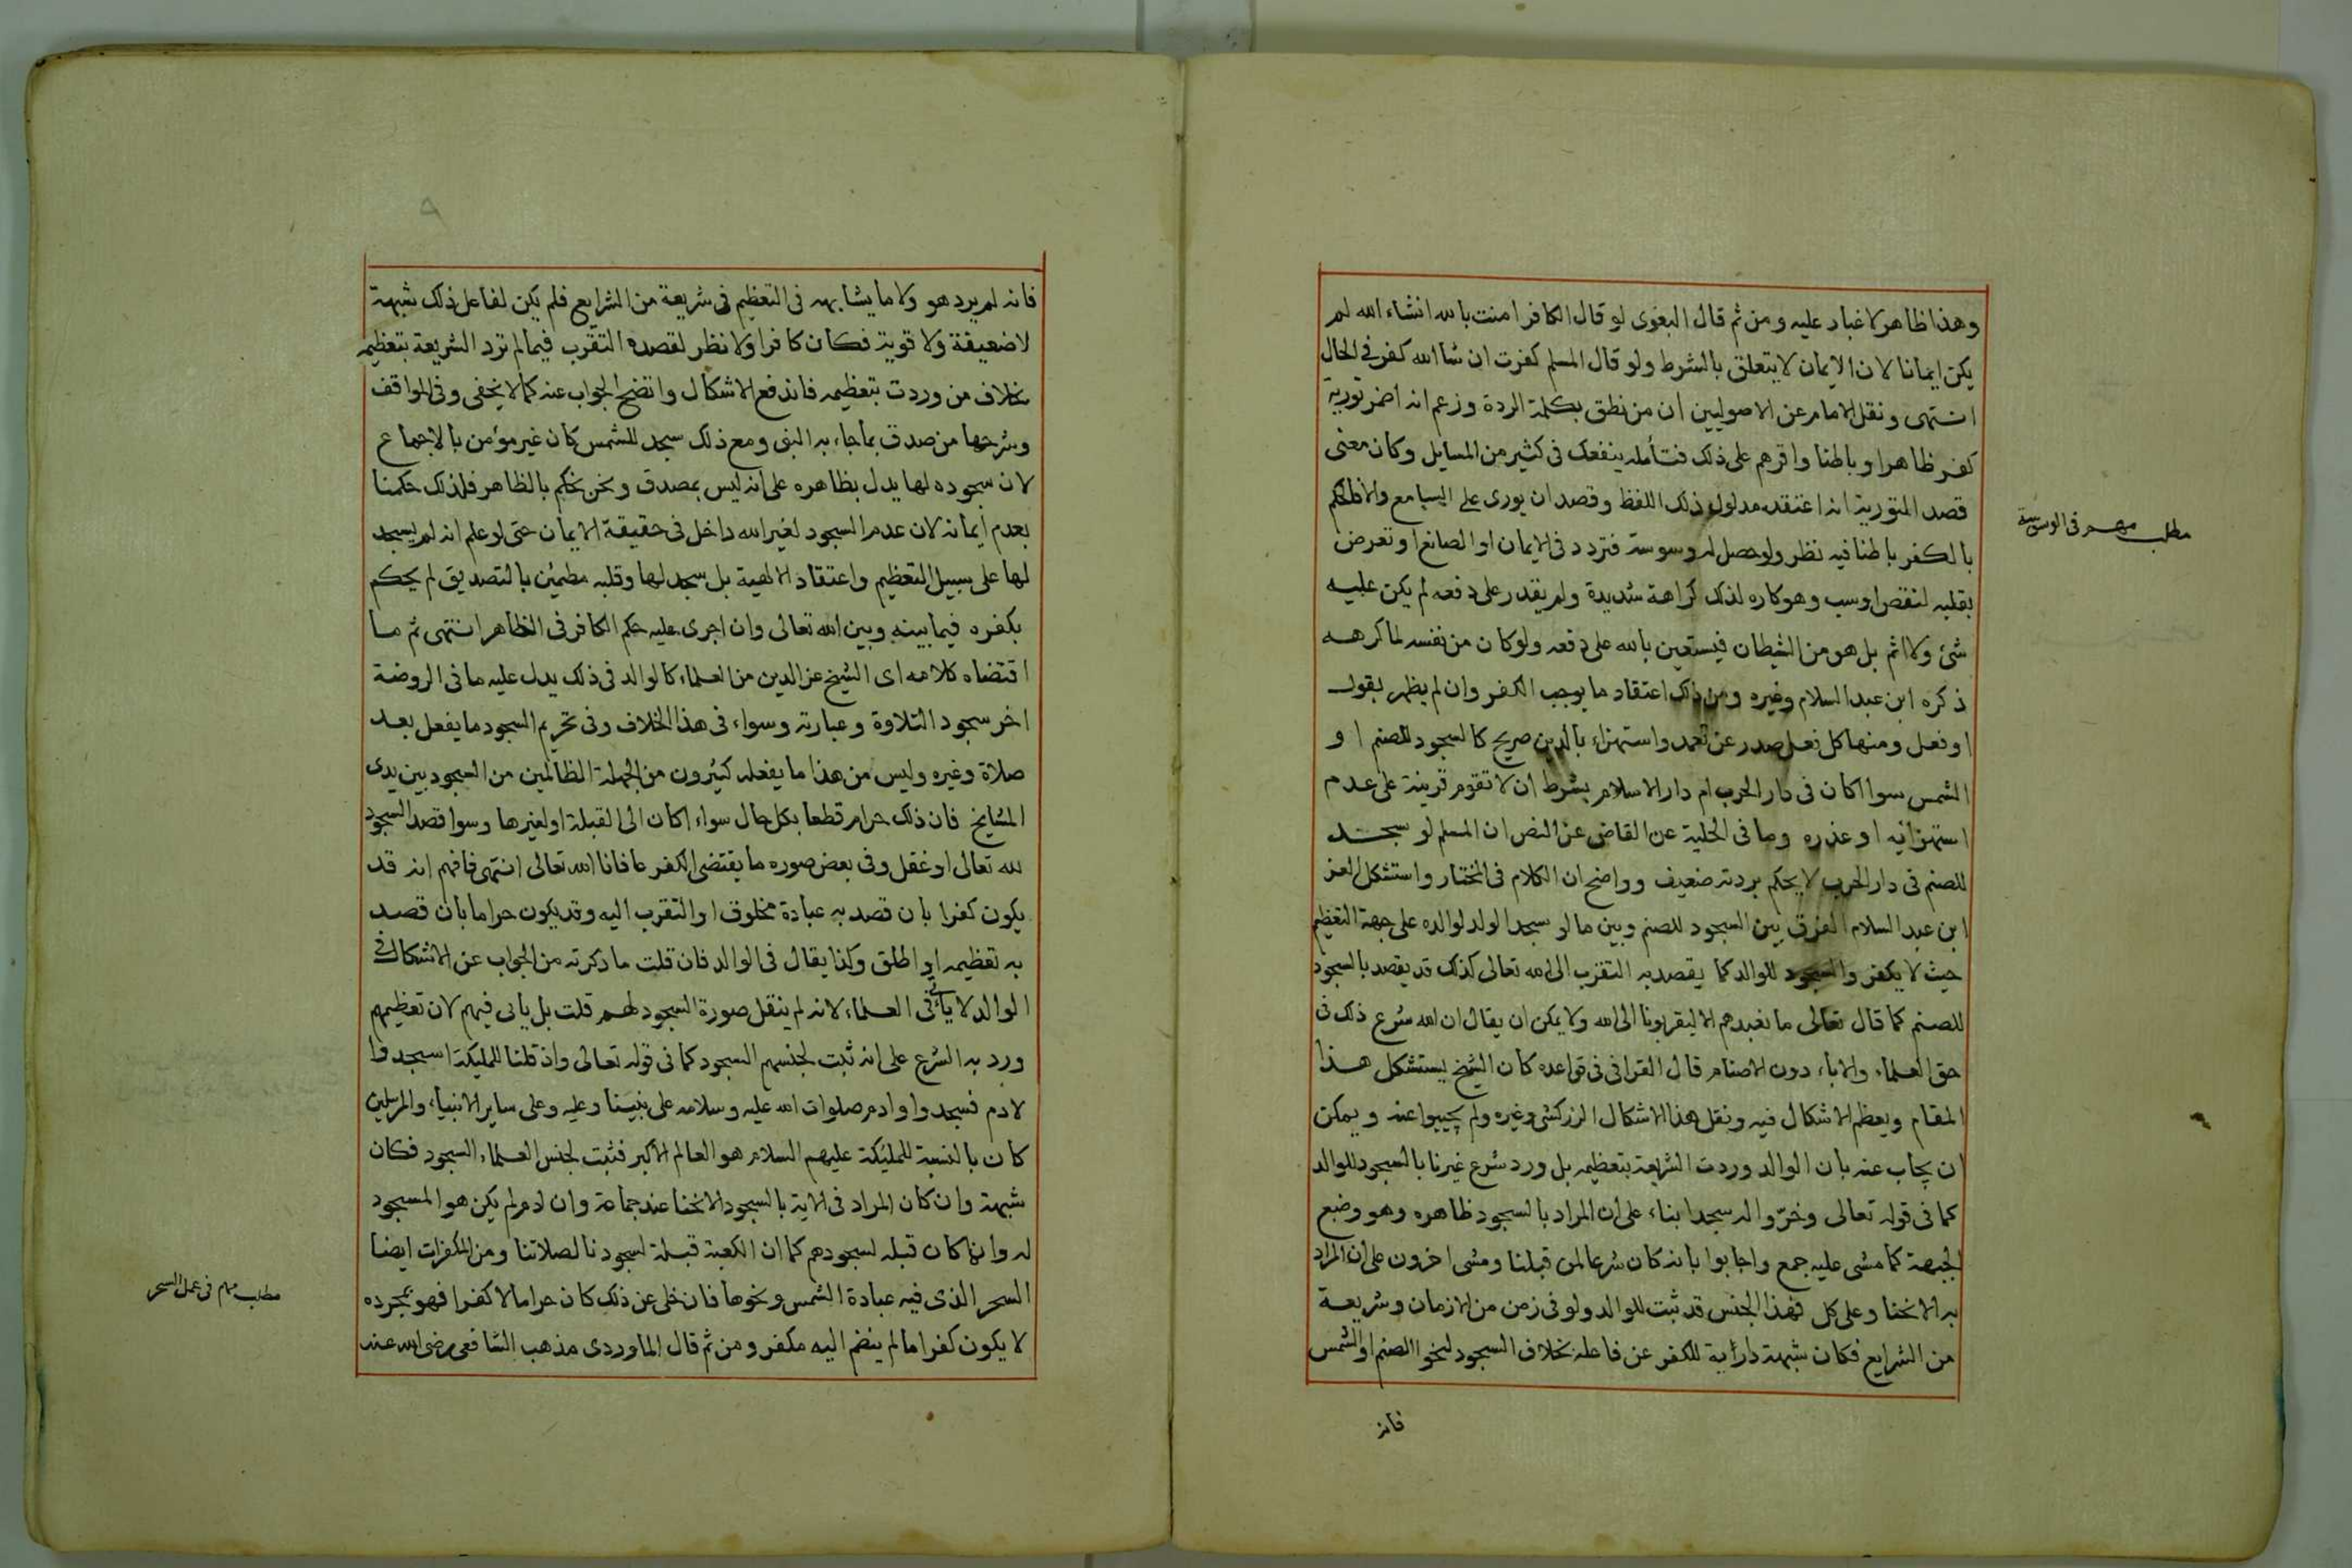 وهذا ظاهر لا غبار عليه ومن ثم قال البغوى لو قال الكافر امنت بالله انشاء الله لم
يكن ايمانا لان الايمان لا يتعلق بالشرط ولو قال المسلم كفرت ان شا الله كفر فى الحال
انتهى ونقل الامام عن الاصوليين ان من نطق بكلمة الردة وزعم انه اضمر تورية
كفر ظاهرا وباطنا واقرهم على ذلك فتأمله ينفعك فى كثير من المسايل وكان معنى
قصد التورية انه اعتقد مدلول ذلك اللفظ وقصد ان يورى على السامع والا فالحكم
بالكفر باطنا فيه نظر ولو حصل له وسوسة فتردد فى الايمان او الصانع او تعرض
مطلب مهم فى الوسوسة
بقلبه لنقص او سب وهو كاره لذلك كراهة شديدة ولم يقدر على دفعه لم يكن عليه
شئ ولا اثم بل هو من الشيطان فيستعين بالله على دفعه ولو كان من نفسه لما كرهه
ذكره ابن عبد السلام وغيره ومن ذلك اعتقاد ما يوجب الكفر وان لم يظهر بقول
او فعل ومنها كل فعل صدر عن تعمد واستهزاء بالدين صريح كالسجود للصنم او
الشمس سوا اكان فى دار الحرب ام دار الاسلام بشرط ان لا تقوم قرينة على عدم
استهزائه او عذره وما فى الحلية عن القاض عن النص ان المسلم لو سجد
للصنم فى دار الحرب لا يحكم بردته ضعيف وواضح ان الكلام فى المختار واستشكل العز
ابن عبد السلام الفرق بين السجود للصنم وبين ما لو سجد الولد لوالده على جهة التعظيم
حيث لا يكفر والسجود للوالد كما يقصد به التقرب الى الله تعالى كذلك قد يقصد بالسجود
للصنم كما قال تعالى ما نعبدهم الا ليقربونا الى الله ولا يمكن ان يقال ان الله شرع ذلك فى
حق العلماء والاباء دون الاصنام قال القرافى فى قواعده كان الشيخ يستشكل هذا
المقام ويعظم الاشكال فيه ونقل هذا الاشكال الزركشى وغيره ولم يجيبوا عنه ويمكن
ان يجاب عنه بان الوالد وردت الشريعة بتعظيمه بل ورد شرع غيرنا بالسجود للوالد
كما فى قوله تعالى وخرّوا له سجدا بناء على ان المراد بالسجود ظاهره وهو وضع
الجبهة كما مشى عليه جمع واجابوا بانه كان شرعا لمن قبلنا ومشى اخرون على ان المراد
به الانحنا وعلى كل فهذا الجنس قد ثبت للوالد ولو فى زمن من الازمان وشريعة
من الشرايع فكان شبهة دارئية للكفر عن فاعله بخلاف السجود لنحو الصنم او الشمس
فانه
فانه لم يرد هو ولا ما يشابهه فى التعظيم فى شريعة من الشرايع فلم يكن لفاعل ذلك شبهة
لا ضعيفة ولا قوية فكان كافرا ولا نظر لقصده التقرب فيما لم ترد الشريعة بتعظيمه
بخلاف من وردت بتعظيمه فاندفع الاشكال واتضح الجواب عنه كما لا يخفى وفى المواقف
وشرحها من صدق بما جاء به النبى ومع ذلك سجد للشمس كان غير مؤمن بالاجماع
لان سجوده لها يدل بظاهره على انه ليس بمصدق ونحن نحكم بالظاهر فلذلك حكمنا
بعدم ايمانه لان عدم السجود لغير الله داخل فى حقيقة الايمان حتى لو علم انه لم يسجد
لها على سبيل التعظيم واعتقاد الالهية بل سجد لها وقلبه مطمئن بالتصديق لم يحكم
بكفره فيما بينه وبين الله تعالى وان اجرى عليه حكم الكافر فى الظاهر انتهى ثم ما
اقتضاه كلامه اى الشيخ عز الدين من العلماء كالوالد فى ذلك يدل عليه ما فى الروضة
اخر سجود التلاوة وعبارته وسواء فى هذا الخلاف وفى تحريم السجود ما يفعل بعد
صلاة وغيره وليس من هذا ما يفعله كثيرون من الجهلة الظالمين من السجود بين يدى
المشايخ فان ذلك حرام قطعا بكل حال سواء اكان الى القبلة او لغيرها وسوا قصد السجود
لله تعالى او غفل وفى بعض صوره ما يقتضى الكفر عافانا الله تعالى انتهى فافهم انه قد
يكون كفرا بان قصد به عبادة مخلوق او التقرب اليه وقد يكون حراما بان قصد
به تعظيمه او اطلق وكذا يقال فى الوالد فان قلت ما ذكرته من الجواب عن الاشكال فى
الوالد لا يأتى فى العلماء لانه لم ينقل صورة السجود لهم قلت بل ياتى فيهم لان تعظيمهم
ورد به الشرع على انه ثبت لجنسهم السجود كما فى قوله تعالى واذ قلنا للمليكة اسجدوا
لادم فسجدوا وادم صلوات الله عليه وسلامه على نبينا وعليه وعلى ساير الانبياء والمرسلين
كان بالنسبة للمليكة عليهم السلام هو العالم الاكبر فثبت لجنس العلماء السجود فكان
شبهة وان كان المراد فى الاية بالسجود الانحنا عند جماعة وان ادم لم يكن هو المسجود
له وانما كان قبله لسجودهم كما ان الكعبة قبلة لسجودنا لصلاتنا ومن المكفرات ايضا
السحر الذى فيه عبادة الشمس ونحوها فان خلى عن ذلك كان حراما لا كفرا فهو بمجرده
مطلب مهم فى عمل السحر
لا يكون كفرا ما لم ينضم اليه مكفر ومن ثم قال الماوردى مذهب الشافعى رضى الله عنه